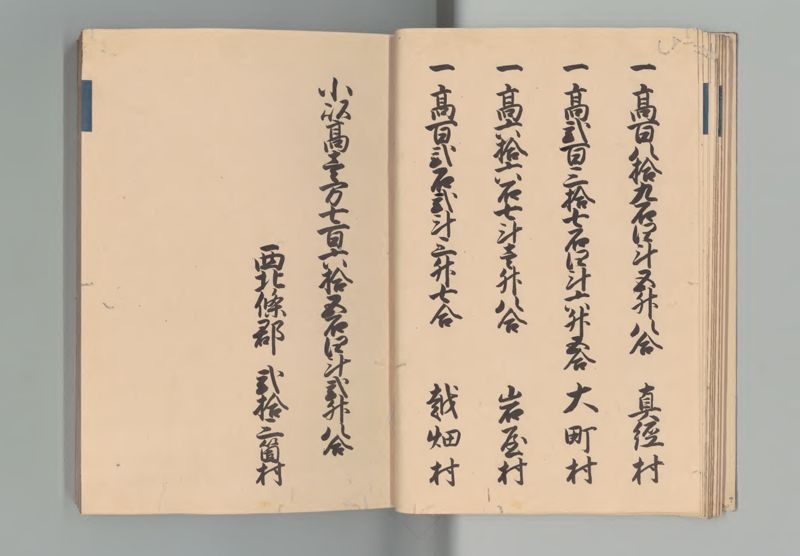 一高百八拾九石四斗五升八合　真経村
一高弐百三拾七石四斗六升五合　大町村
一高六拾六石七斗壱升八合　岩屋村
一高百弐石弐斗三升七合　越畑村
小以高壱万七百六拾五石四斗弐升八合
西北條郡　弐拾三箇村